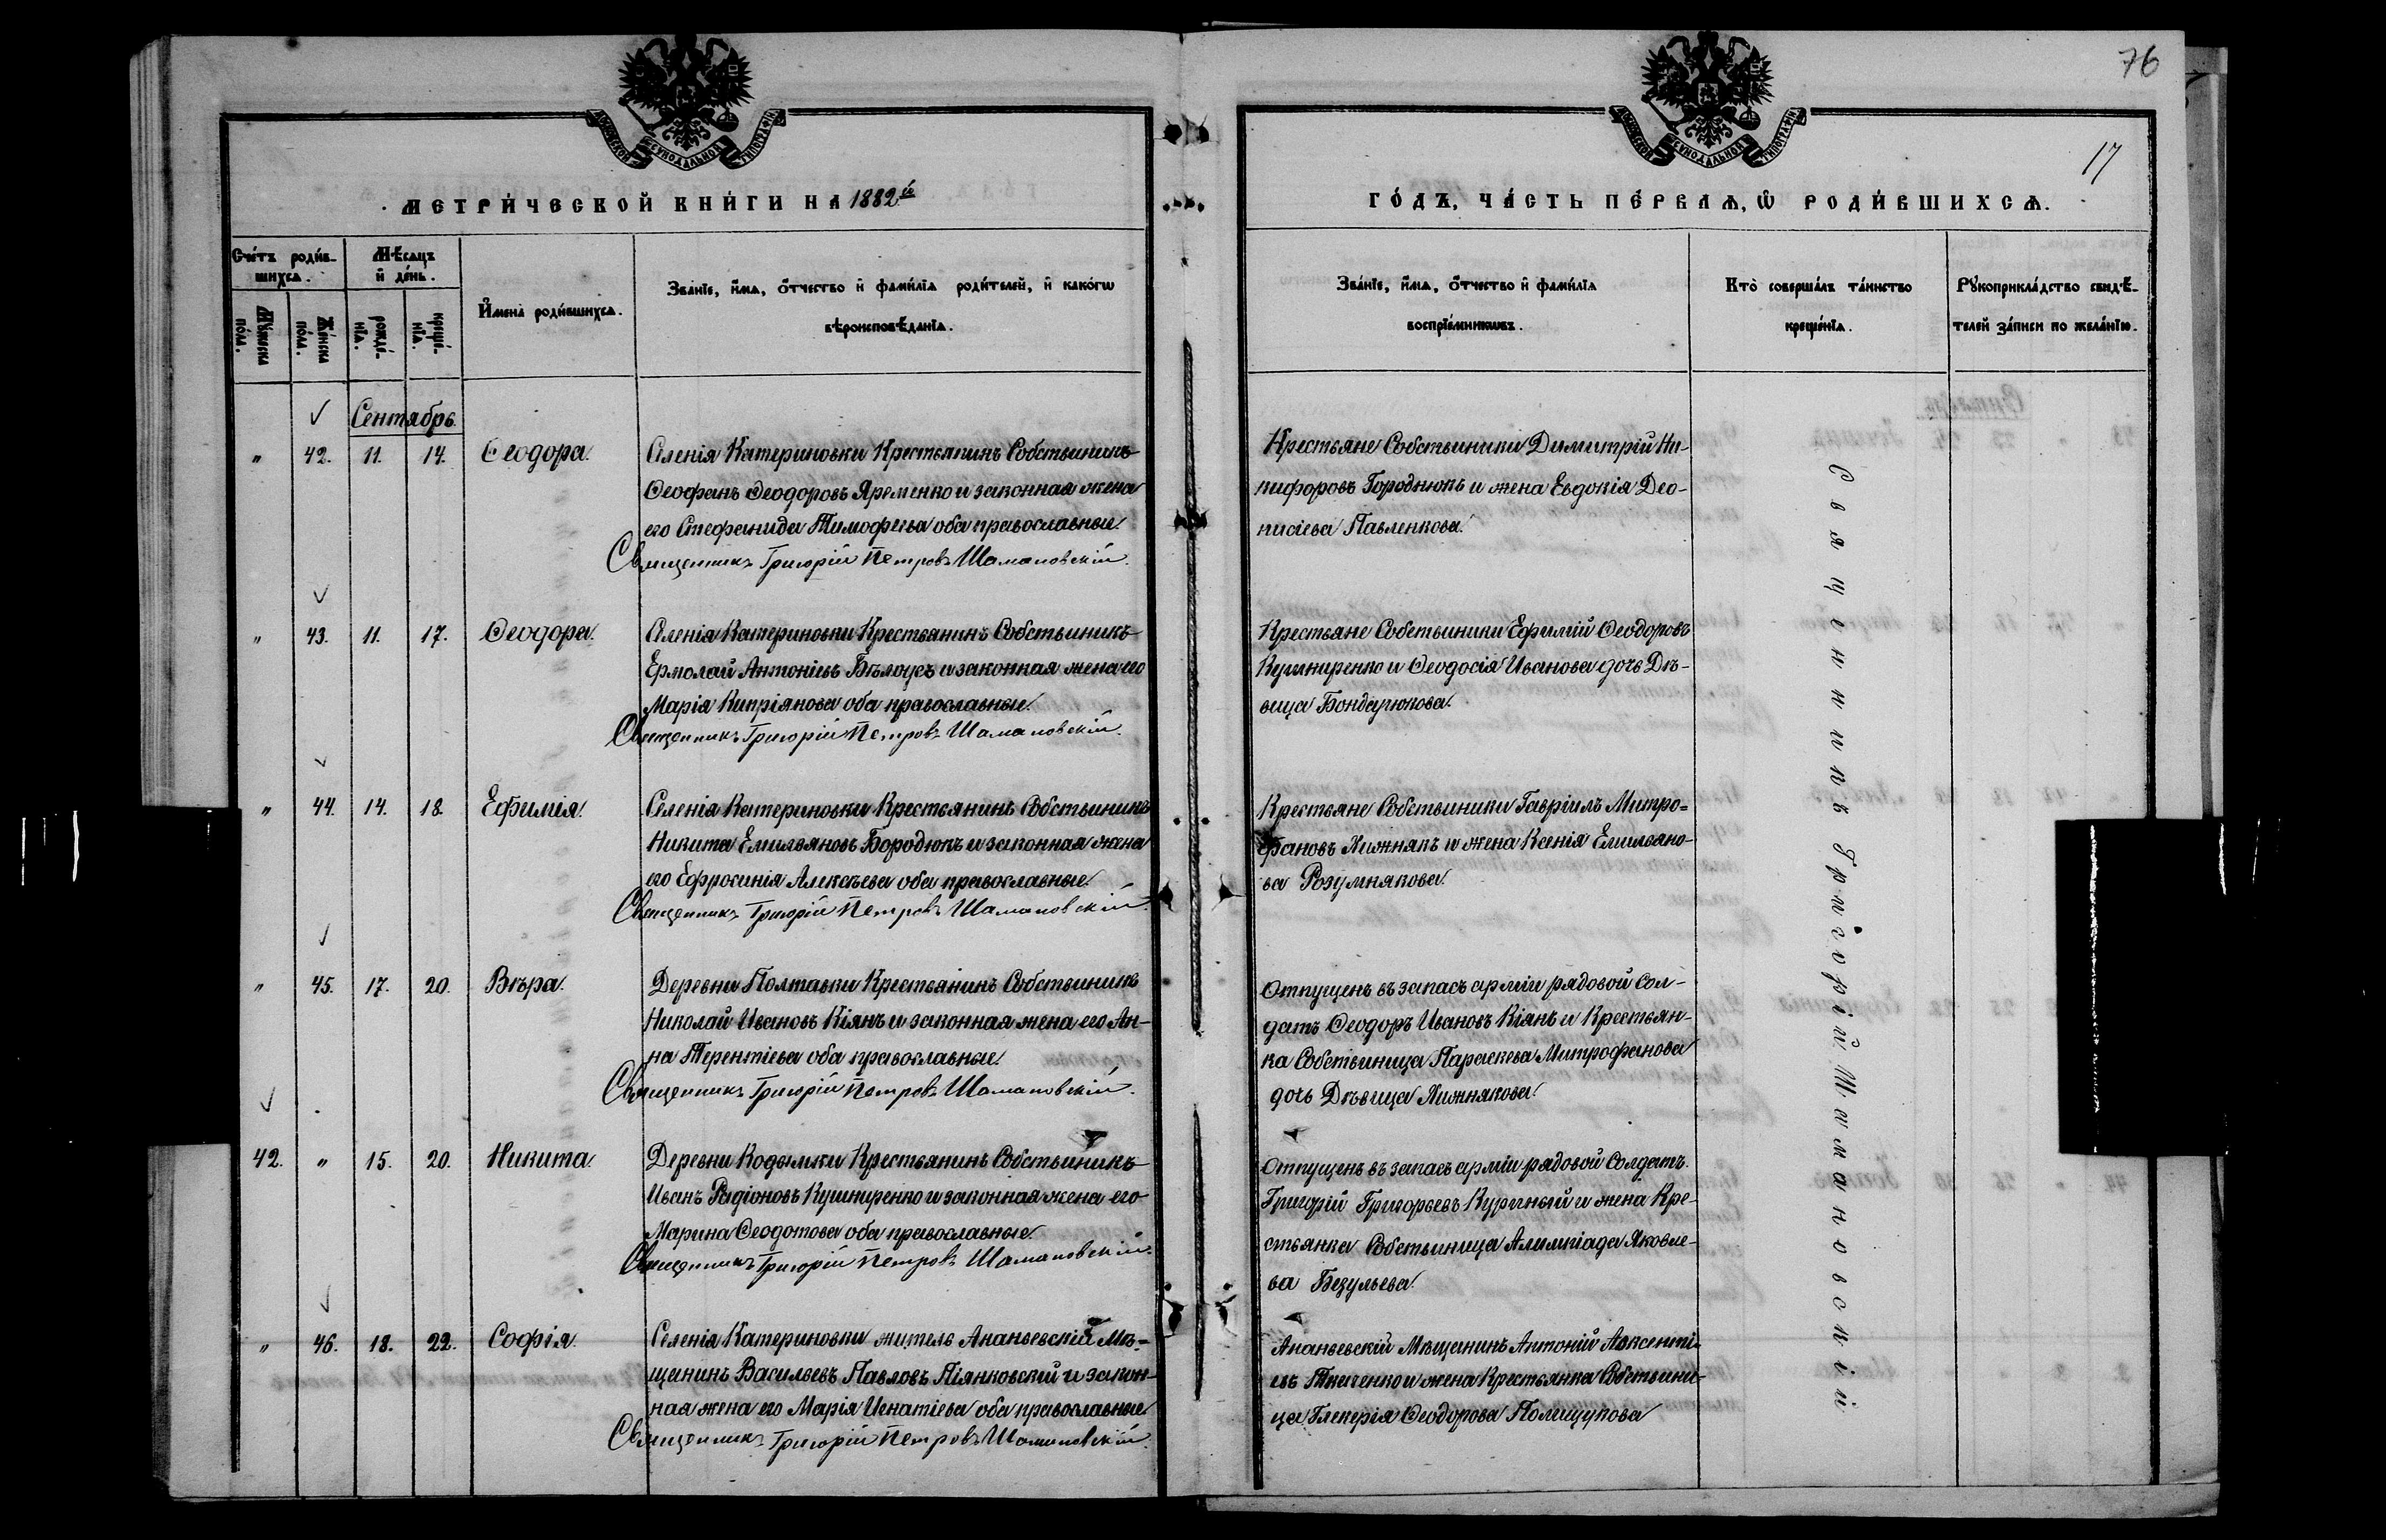 76
17
МОСКОВСКОЙ СѴНОДАЛЬНОЙ ТИПОГРАФІИ
МОСКОВСКОЙ СѴНОДАЛЬНОЙ ТИПОГРАФІИ
МЕТРИ́ЧЕСКОЙ КНИ́ГИ НА 1882й
ГО́ДЪ, ЧА́СТЬ ПЕ́РВАѦ, Ѡ҆ РОДИ́ВШИХСѦ.
Сче́тъ роди́в-
шихсѧ.
Мѣ́сѧцъ
и҆ де́нь.
И҆мена̀ роди́вшихсѧ.
Зва́нїе, и҆́мѧ, ѻ҆́тчество и҆ фами́лїѧ роди́телей, и҆ како́гѡ
вѣроисповѣ́данїѧ.
Мꙋ́жеска
по́ла.
Же́нска
по́ла.
рожде́-
нїѧ.
креще́-
нїѧ.
Зва́нїе, и҆́мѧ, ѻ҆́тчество и҆ фами́лїѧ
воспрїе́мникѡвъ.
Кто̀ соверша́лъ та́инство
креще́нїѧ.
Рꙋкоприкла́дство свидѣ́-
телей за́писи по жела́нїю.
Сентябрь.
" 42. 11. 14. Ѳеодора.
Селенія Катериновки Крестьянинъ Собственикъ
Ѳеофанъ Ѳеодоровъ Яременко и законная жена
его Стефанида Тимофеева оба православные.
Священникъ Григорій Петровъ Шамановскій.
Крестьяне Собственики Димитрій Ни-
кифоровъ Городнюкъ и жена Евдокія Део-
нисіева Павленкова.
" 43. 11. 17. Ѳеодора.
Селенія Катериновки Крестьянинъ Собственикъ
Ермолай Антоніевъ Бѣлоусъ и законная жена его
Марія Кипріянова оба православные.
Священникъ Григорій Петровъ Шамановскій.
Крестьяне Собственики Ефимій Ѳеодоровъ
Кушниренко и Ѳеодосія Иванова дочь Дѣ-
вица Бондарюкова.
" 44. 14. 18. Ефимія.
Селенія Катериновки Крестьянинъ Собственикъ
Никита Емильяновъ Бородюкъ и законная жена
его Ефросинія Алексѣева оба православные.
Священникъ Григорій Петровъ Шамановскій.
Крестьяне Собственики Гавріилъ Митро=
фановъ Хижнякъ и жена Ксенія Емильяно-
ва Розумнякова.
" 45. 17. 20. Вѣра.
Деревни Полтавки Крестьянинъ Собственикъ
Николай Ивановъ Кіянъ и законная жена его Ан-
на Терентіева оба православные.
Священникъ Григорій Петровъ Шамановскій.
Отпущенъ въ запасъ арміи рядовой Сол-
датъ Ѳеодоръ Ивановъ Кіянъ и Крестьян-
ка Собственица Параскева Митрофанова
дочь Дѣвица Хижнякова.
42. " 15. 20. Никита.
Деревни Кодымки Крестьянинъ Собственикъ
Иванъ Радіоновъ Кушниренко и законная жена его
Марина Ѳеодотова оба православные.
Священникъ Григорій Петровъ Шамановскій.
Отпущенъ въ запасъ арміи рядовой Солдатъ.
Григорій Григорьевъ Куричный и жена Кре-
стьянка Собственица Алимпіада Яковле-
ва Безульева.
" 46. 18. 22. Софія.
Селенія Катериновки житель Ананьевскій Мѣ-
щанинъ Васильевъ Павловъ Піянковскій и закон-
ная жена его Марія Игнатіева оба православные.
Священникъ Григорій Петровъ Шамановскій.
Ананьевскій Мѣщанинъ Антоній Авксентіе-
въ Ткаченко и жена Крестьянка Собствени-
ца Гликерія Ѳеодорова Полищукова
Священникъ Григорій Шамановскій